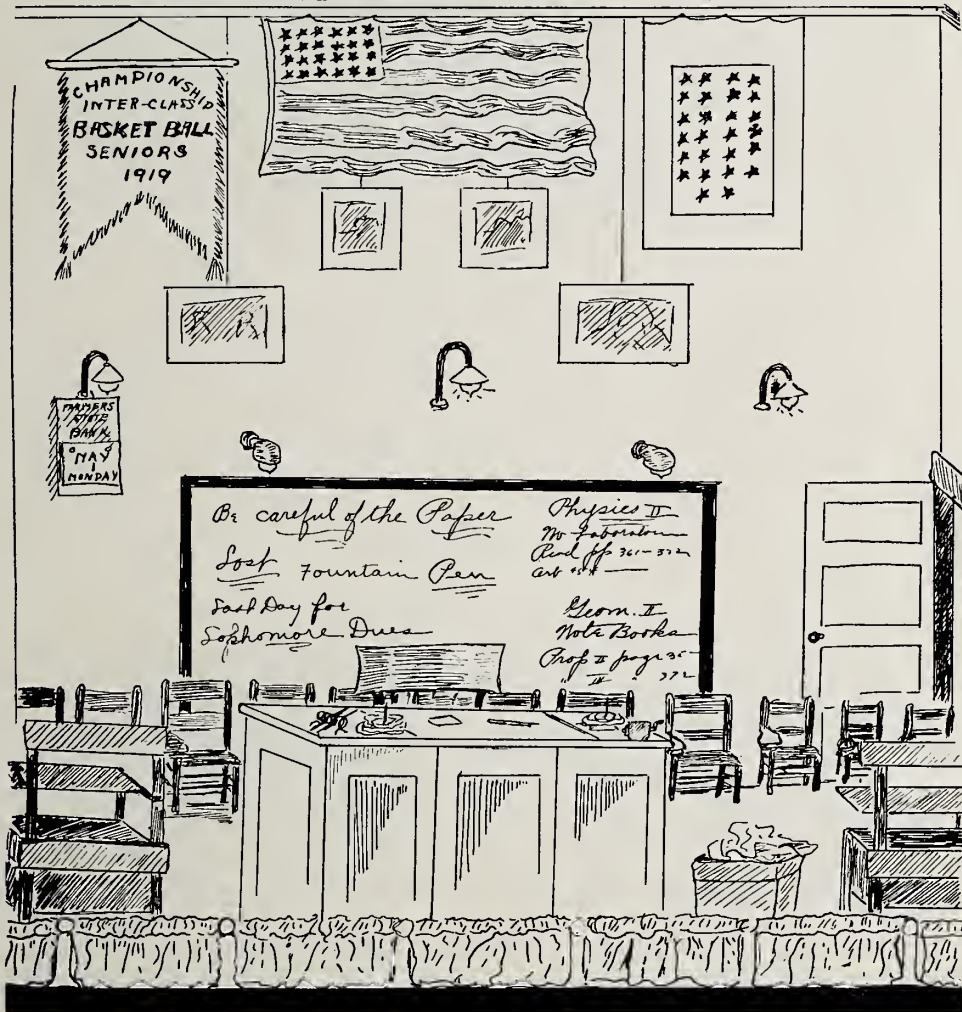 CHAMPIONSHIP
INTER-CLASS
BASKET BALL
SENIORS
1919
FARMERS
STATE
BANK
MAY
1
MONDAY
Be careful of the Paper
Lost Fountain Pen
Last Day for
Sophomore Dues
Physics II
No Laboratory
Read pp 361-372
Geom. II
Note Books
Prop II page 35
" III 372